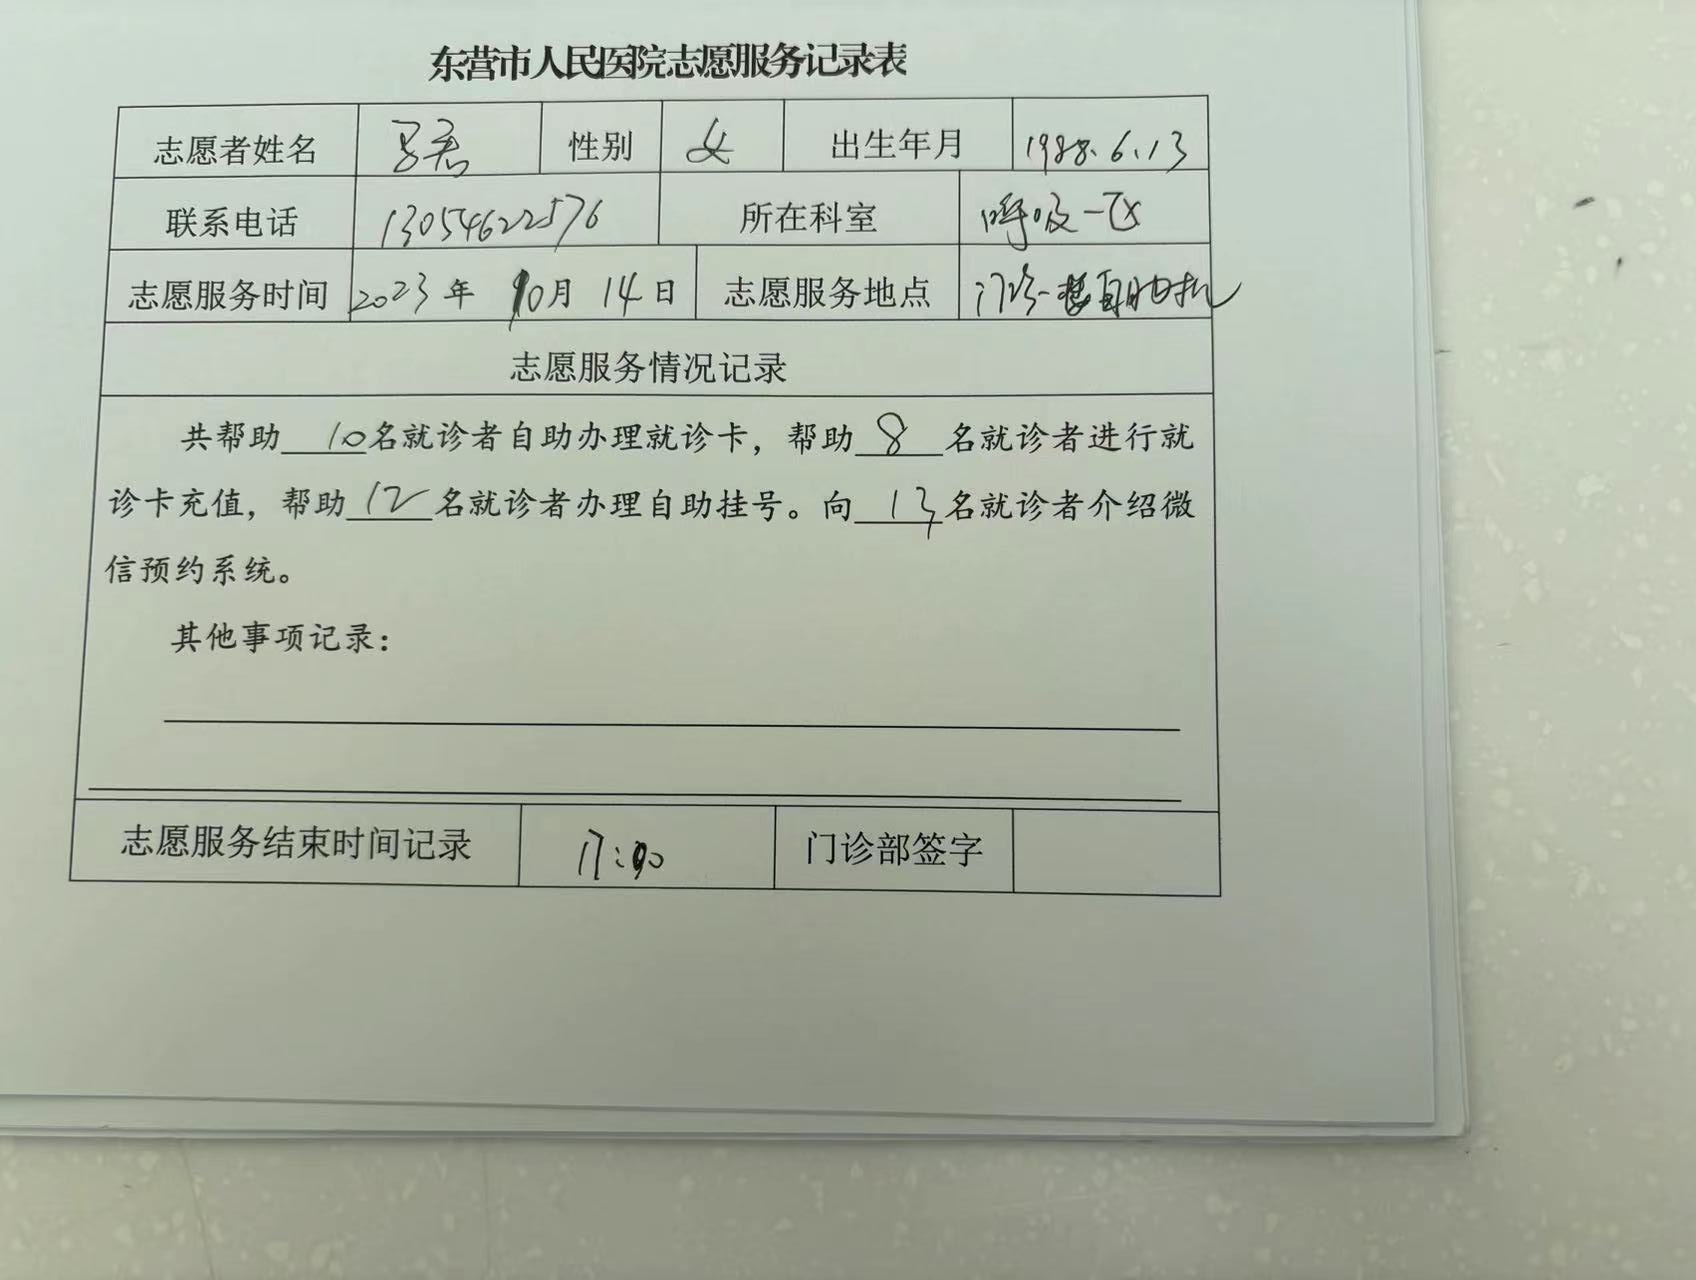 东营市人民医院志愿服务记录表
志愿者姓名 性别 女 出生年月 1988.6.13
联系电话 13054622576 所在科室 呼吸一区
志愿服务时间 2023年 10月 14日 志愿服务地点 门诊一楼自助机
志愿服务情况记录
共帮助 10名就诊者自助办理就诊卡，帮助 8 名就诊者进行就
诊卡充值，帮助 12 名就诊者办理自助挂号。向 13 名就诊者介绍微
信预约系统。
其他事项记录：
志愿服务结束时间记录 17:00 门诊部签字